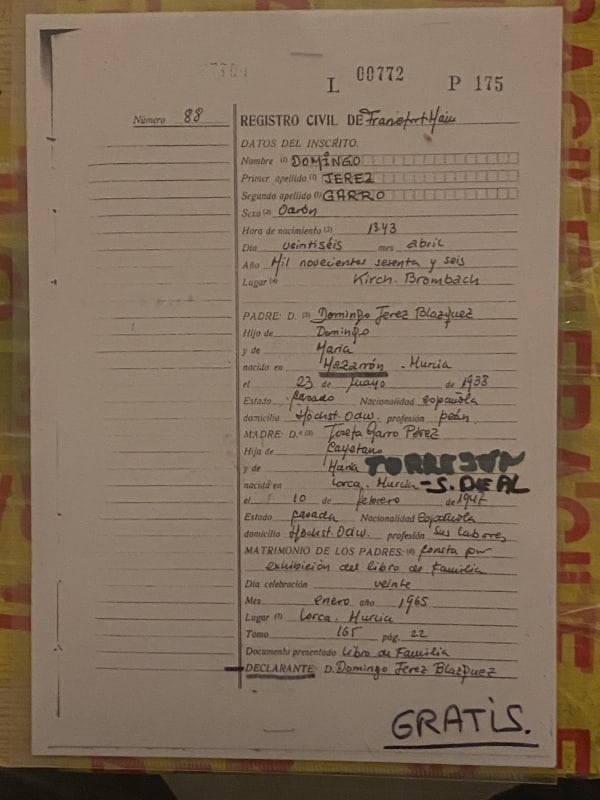 L 00772 P 175
Número 88
REGISTRO CIVIL DE Francfort-Main
DATOS DEL INSCRITO.
Nombre (1) DOMINGO
Primer apellido (1) JEREZ
Segundo apellido (1) GARRO
Sexo (2) Varón
Hora de nacimiento (3) 1343
Día veintiséis mes abril
Año Mil novecientos sesenta y seis
Lugar (4) Kirch-Brombach
PADRE: D. (5) Domingo Jerez Blazquez
Hijo de Domingo
y de María
nacido en Mazarrón - Murcia
el 23 de mayo de 1938
Estado casado Nacionalidad española
domicilio Höchst. Odw. profesión peón
MADRE: D.ª (5) Josefa Garro Pérez
Hija de Cayetano
y de María TORREJÓN
nacida en Lorca. Murcia - S. DE AL
el 10 de febrero de 1947
Estado casada Nacionalidad española
domicilio Höchst. Odw. profesión sus labores
MATRIMONIO DE LOS PADRES: (6) consta por
exhibición del libro de Familia
Día celebración veinte
Mes enero año 1965
Lugar (7) Lorca. Murcia
Tomo 165 pág. 22
Documento presentado libro de Familia
DECLARANTE: D. Domingo Jerez Blazquez
GRATIS.